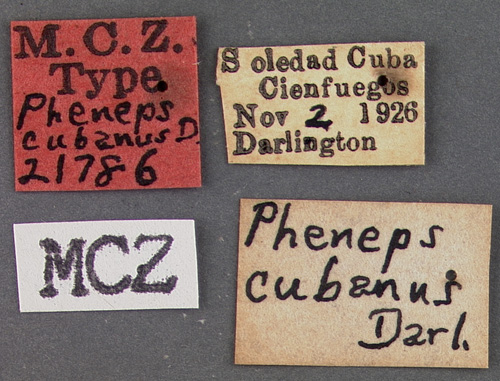 M.C.Z.
Type
Pheneps
cubanus D.
21786
Soledad Cuba
Cienfuegos
Nov 2 1926
Darlington
MCZ
Pheneps
cubanus
Darl.